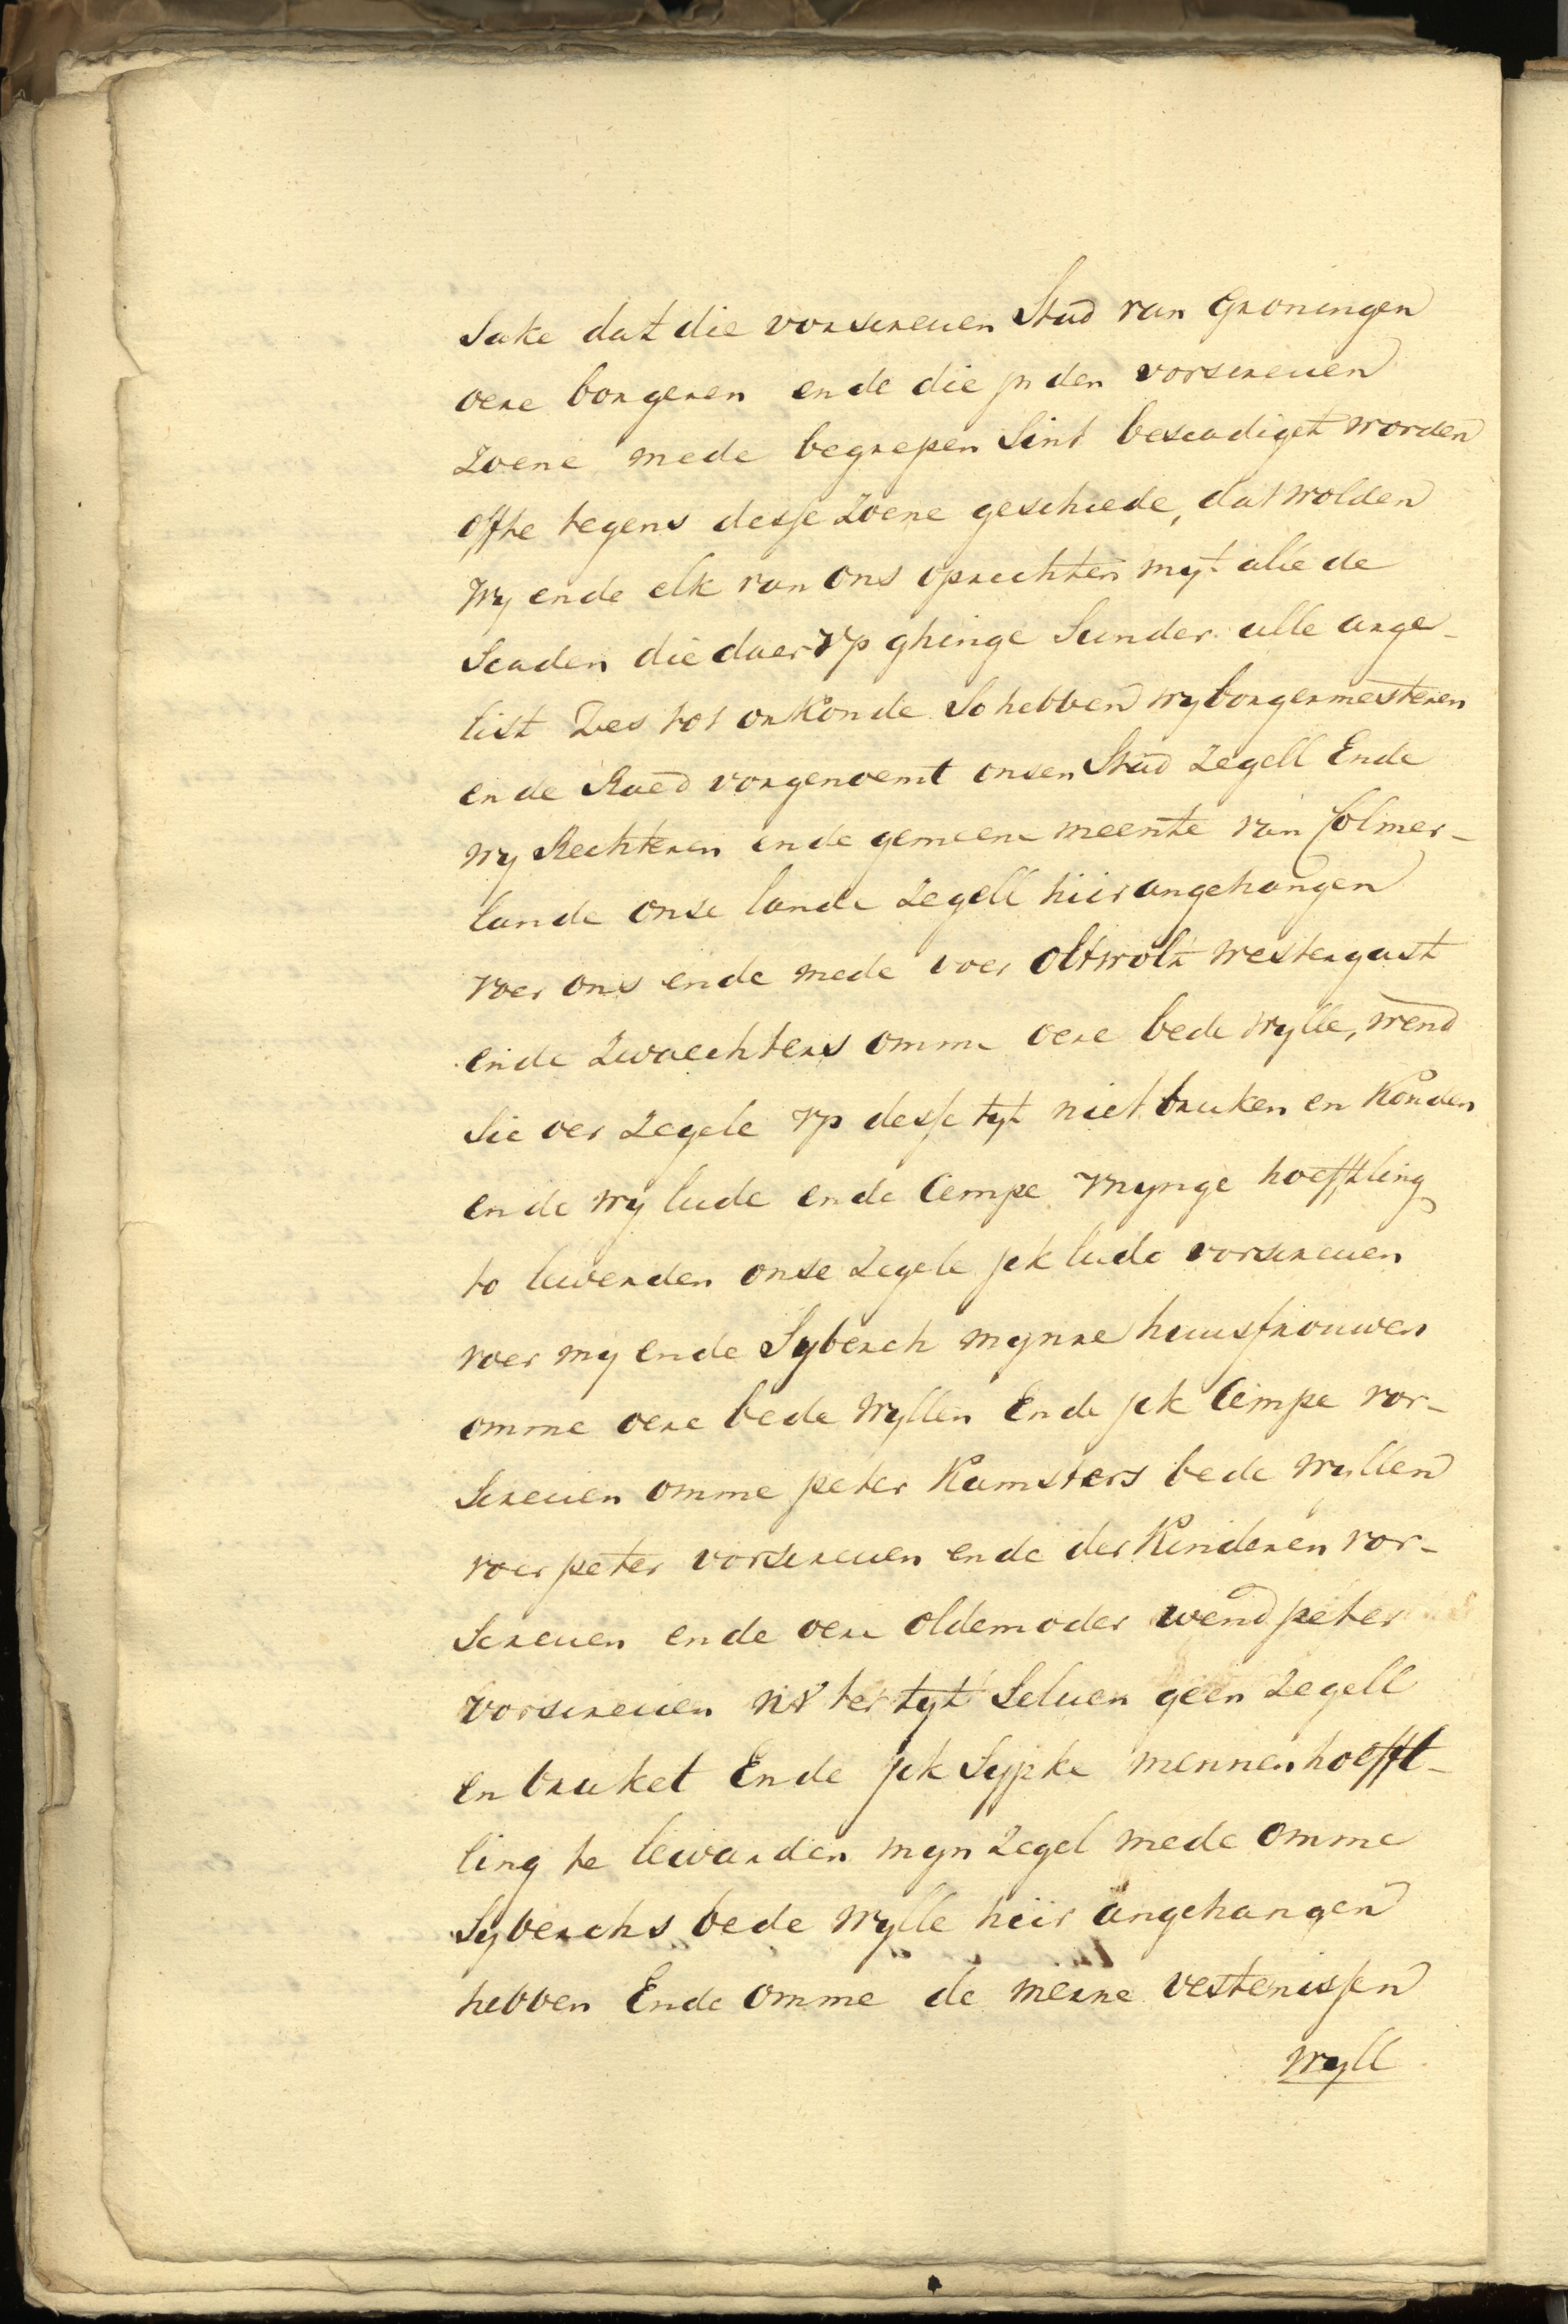 Sake dat die vorscreuen Stad van Groningen
oere borgeren ende die jn den vorscreuen
Zoene mede begrepen Sint bescadiget worden
offte tegens desse Zoene geschiede, dat wolden
Wy ende elk van ons oprechten myt alle de
Scaden die daer vp ghinge Sunder alle arge-
list Des tot orkonde So hebben wy borgermesteren
ende Raed vorgenoemt onsen Stad Zegell Ende
wy Rechteren ende gemeene meente van Colmer-
lande onse lande Zegell hiir angehangen
voer ons ende mede voer oltwolt westergast
ende Zwaechters omme oere bede wylle, wend
Sie oer Zegele vp desse tyt niet bruken en konden
ende wy lude ende Cempe vnynge hoefftling
to lewerden onse Zegele jck lude vorscreuen
voer my ende Syberch mynre huusfrouwen
omme oere bede wyllen Ende jck Cempe vor-
Screuen omme peter Kamsters bede wyllen
voer peter vorscreuen ende der Kinderen vor-
Screuen ende oere oldemoder wend peter
vorscreuen nv ter tyt Seluen geen Zegell
en bruket Ende jck Sypke mennen hoefft-
ling te lewarden myn Zegel mede omme
Syberchs bede wylle hiir angehangen
hebben Ende omme de merre vestenissen
wyll